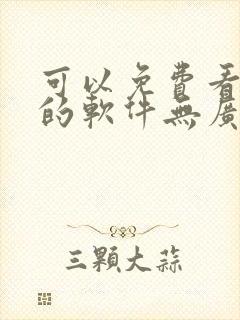 可以免費看
的軟件無廣
三顆大蒜